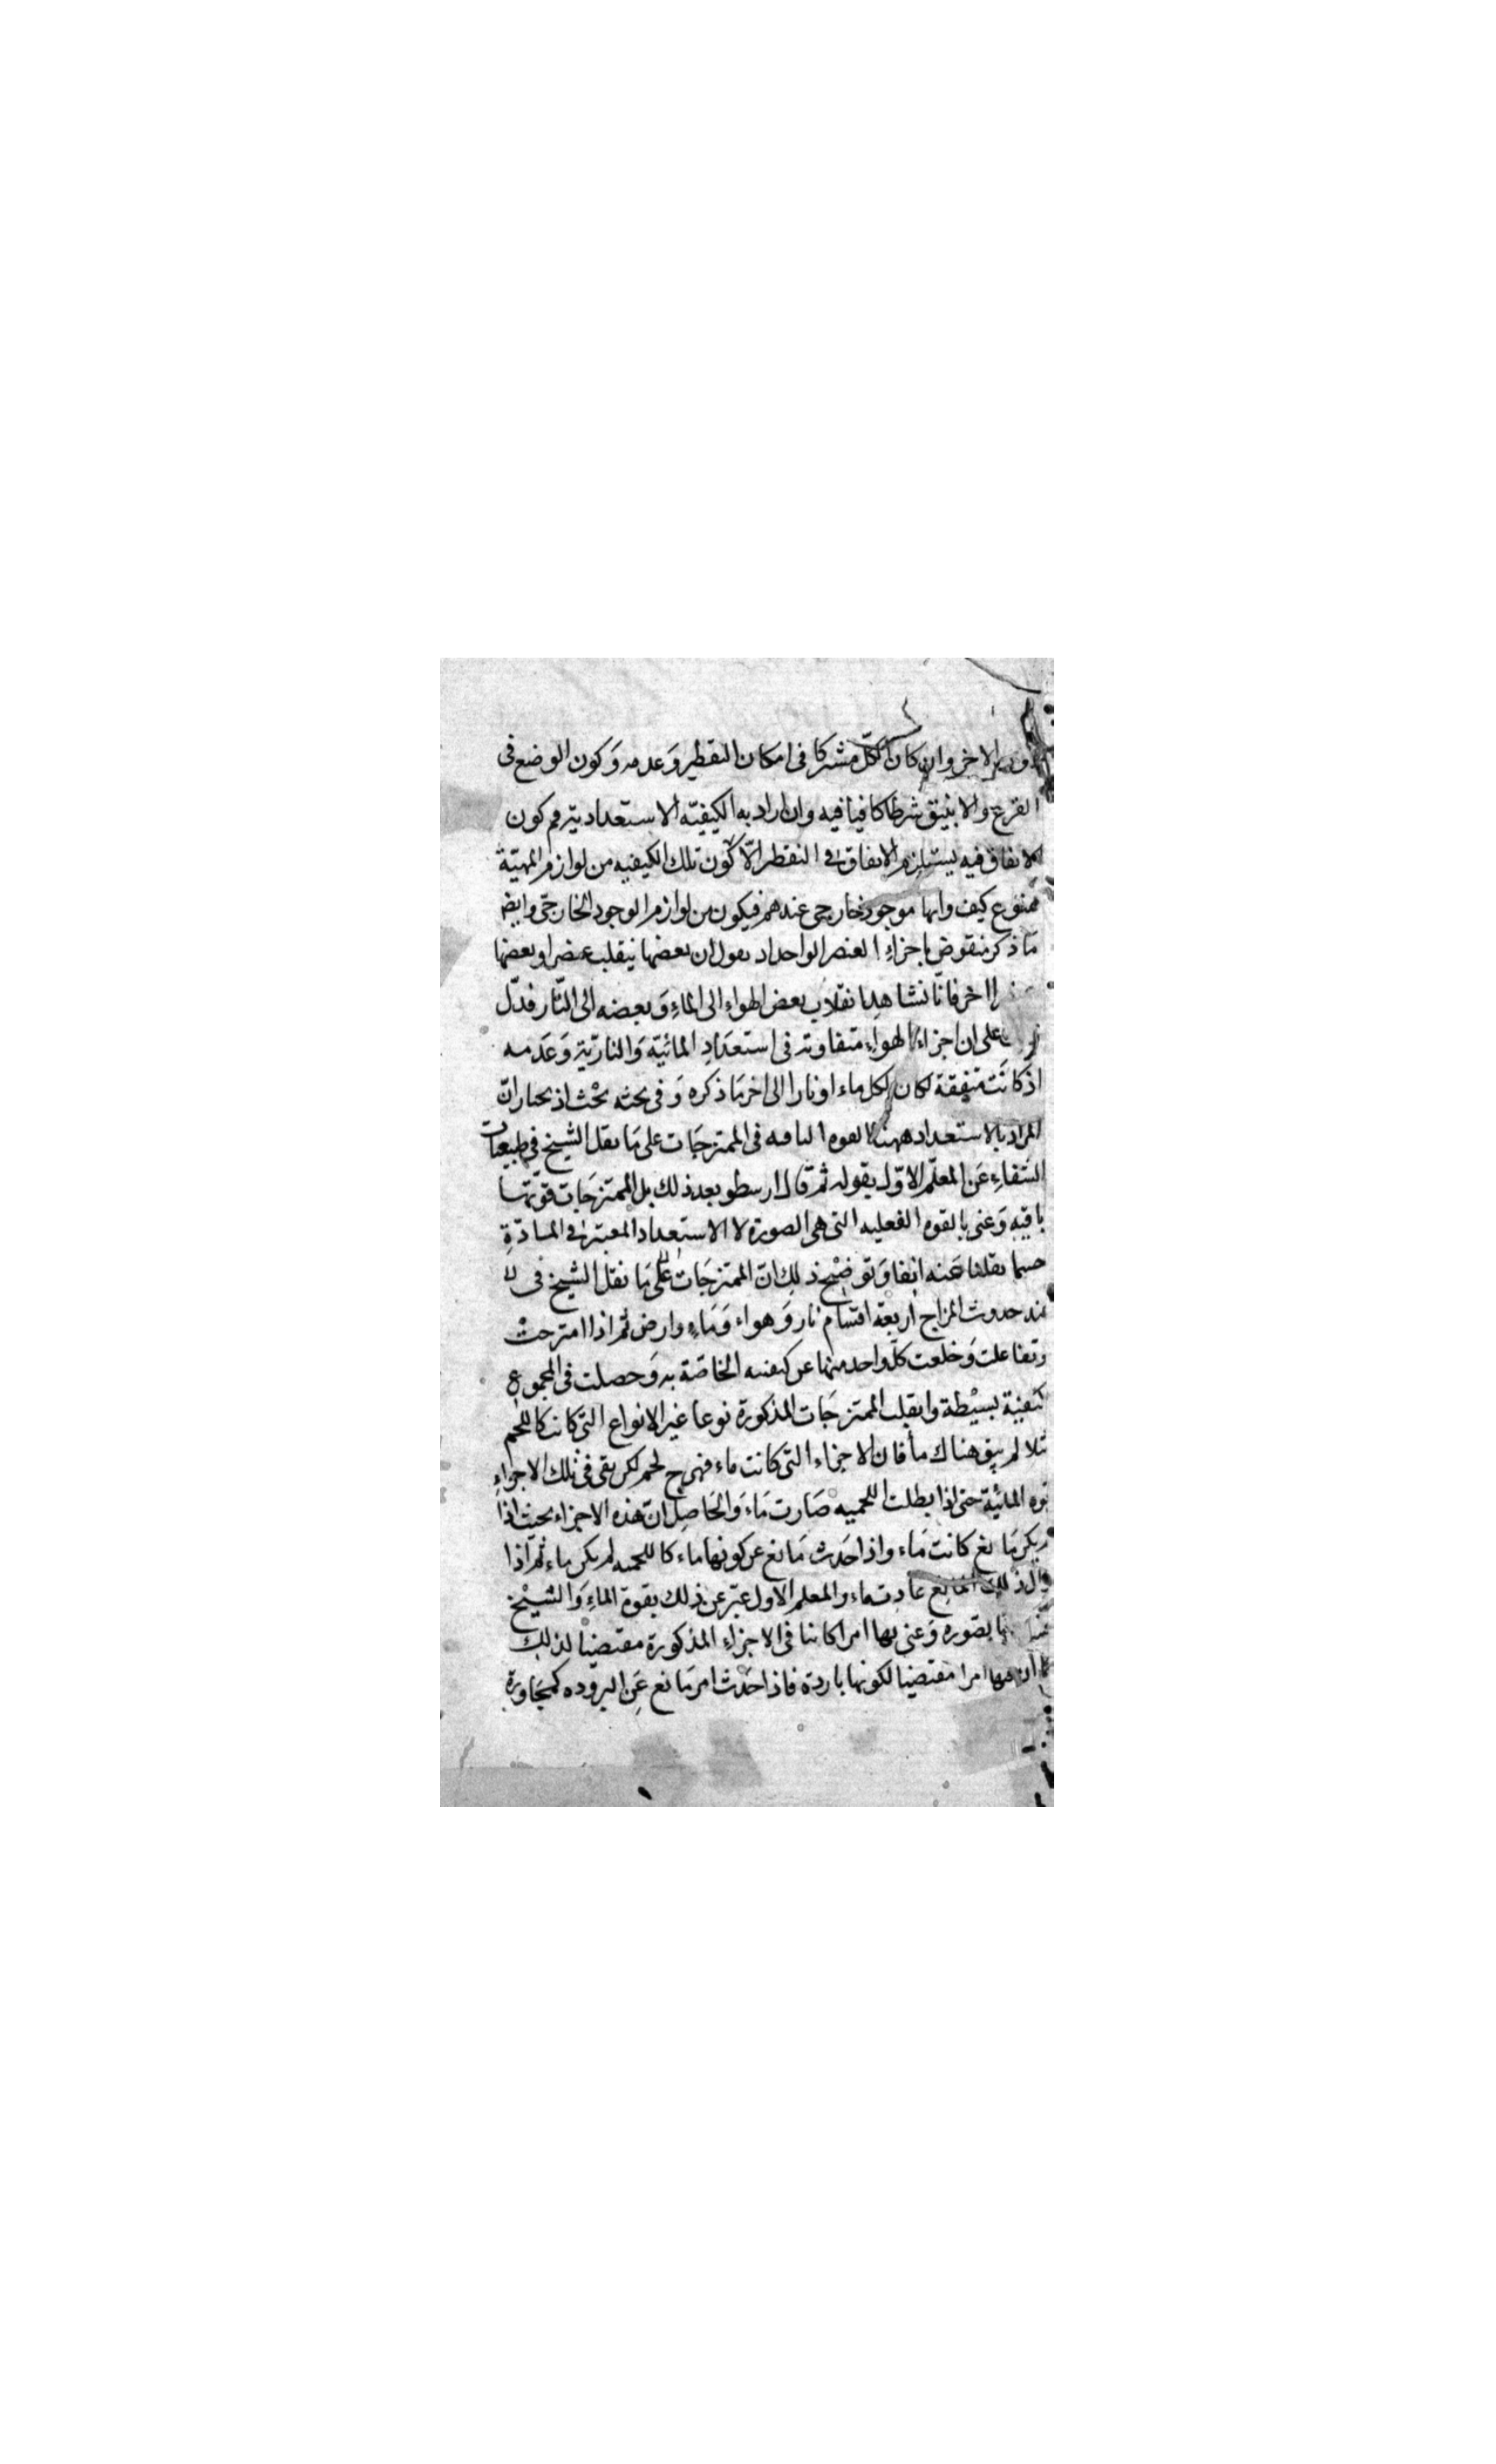 دون الاخر وان كان الكل مشتركا فى امكان التقطير وعدمه وكون الوضع فى
القرع والانبيق شرطا كافيا فيه وان اراد به الكيفيّة الاستعدادية فم كون
الاتفاق فيه يستلزم الاتفاق فى التقطر الّا كون تلك الكيفيه من لوازم المهيّة
ممنوع كيف وانها موجود خارجى عندهم فيكون من لوازم الوجود الخارجى وايض
ما ذكر منقوض باجزاءِ العنصر الواحد اد نقول ان بعضها ينقلب عنصرا وبعضها
اخر فانّا نشاهد انقلاب بعض الهواء الى الماءِ وَبعضه الى النّار فدّل
على ان اجزاء الهواءِ متفاوته فى استعدَادِ المائيّة وَالناريّة وَعَدمه
اذ كانَت متفِقة لكان الكل ماء او نارا الى اخر مَا ذكره وَفى بحثه بحْث اذ نختار انّ
المرَاد بالاستعداد ههنا القوه الباقيه فى الممتزجَات على مَا نقل الشيخ فى طبيعيات
الشفاءِ عَن المعلّم الاوّل بقوله ثم قال ارسطو بعد ذلك بل الممتزجَات قوّتها
باقيه وَعنى بالقوه الفعليه التى هى الصورة لا الاستعداد المعتبر فى المادّةِ
حسبما نقلنا عَنه انفا وَتوضيْح ذلك انّ الممتزجَات على مَا نقل الشيخ فى
عند حدوث المزاج اربعة اقسَام نار وَهواء وَمَاءٍ وارض ثم اذا امتزجتْ
وتفاعلت وَخلعت كلّ واحد منها عن كيفيته الخاصّة به وَحصلت فى المجموع
كيفيّة بسيْطة وانقلب الممتزجَات المذكورة نوعا غير الانواع التى كانت كاللحم
مثلا لم يبق هناك مأ فان الاجزاء التى كانت ماء فهى ح لحم لكن بقى فى تلك الاجزاءِ
قوه المائيّة حتى اذا بطلت اللحميه صَارت مَاء وَالحَاصل انّ هذه الاجزاء بحيث اذا
لم يكن مَانع كانت مَاء واذا حَدث مَانع عن كونها ماء كاللحميه لم يكن ماء ثمّ اذا
زال ذلك المانع عادت ماء والمعلم الاول عبّر عن ذلك بقوة الماءِ وَالشيْخ
عنها بصوره وَعنى بها امرا كاننا فى الاجزاءِ المذكورة مقتضيْا لذلك
كما ان فيها امرا مقتضيا لكونها باردة فاذا حَدث امر مَانع عَن البروده كمجَاورة